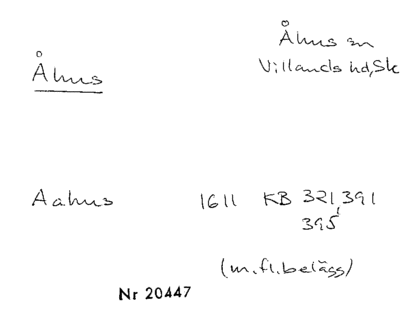 Åhus
Åhus sn
Villands hd, Sk
Aahus 1611 KB 321, 391
395
(m.fl. belägg)
Nr 20447